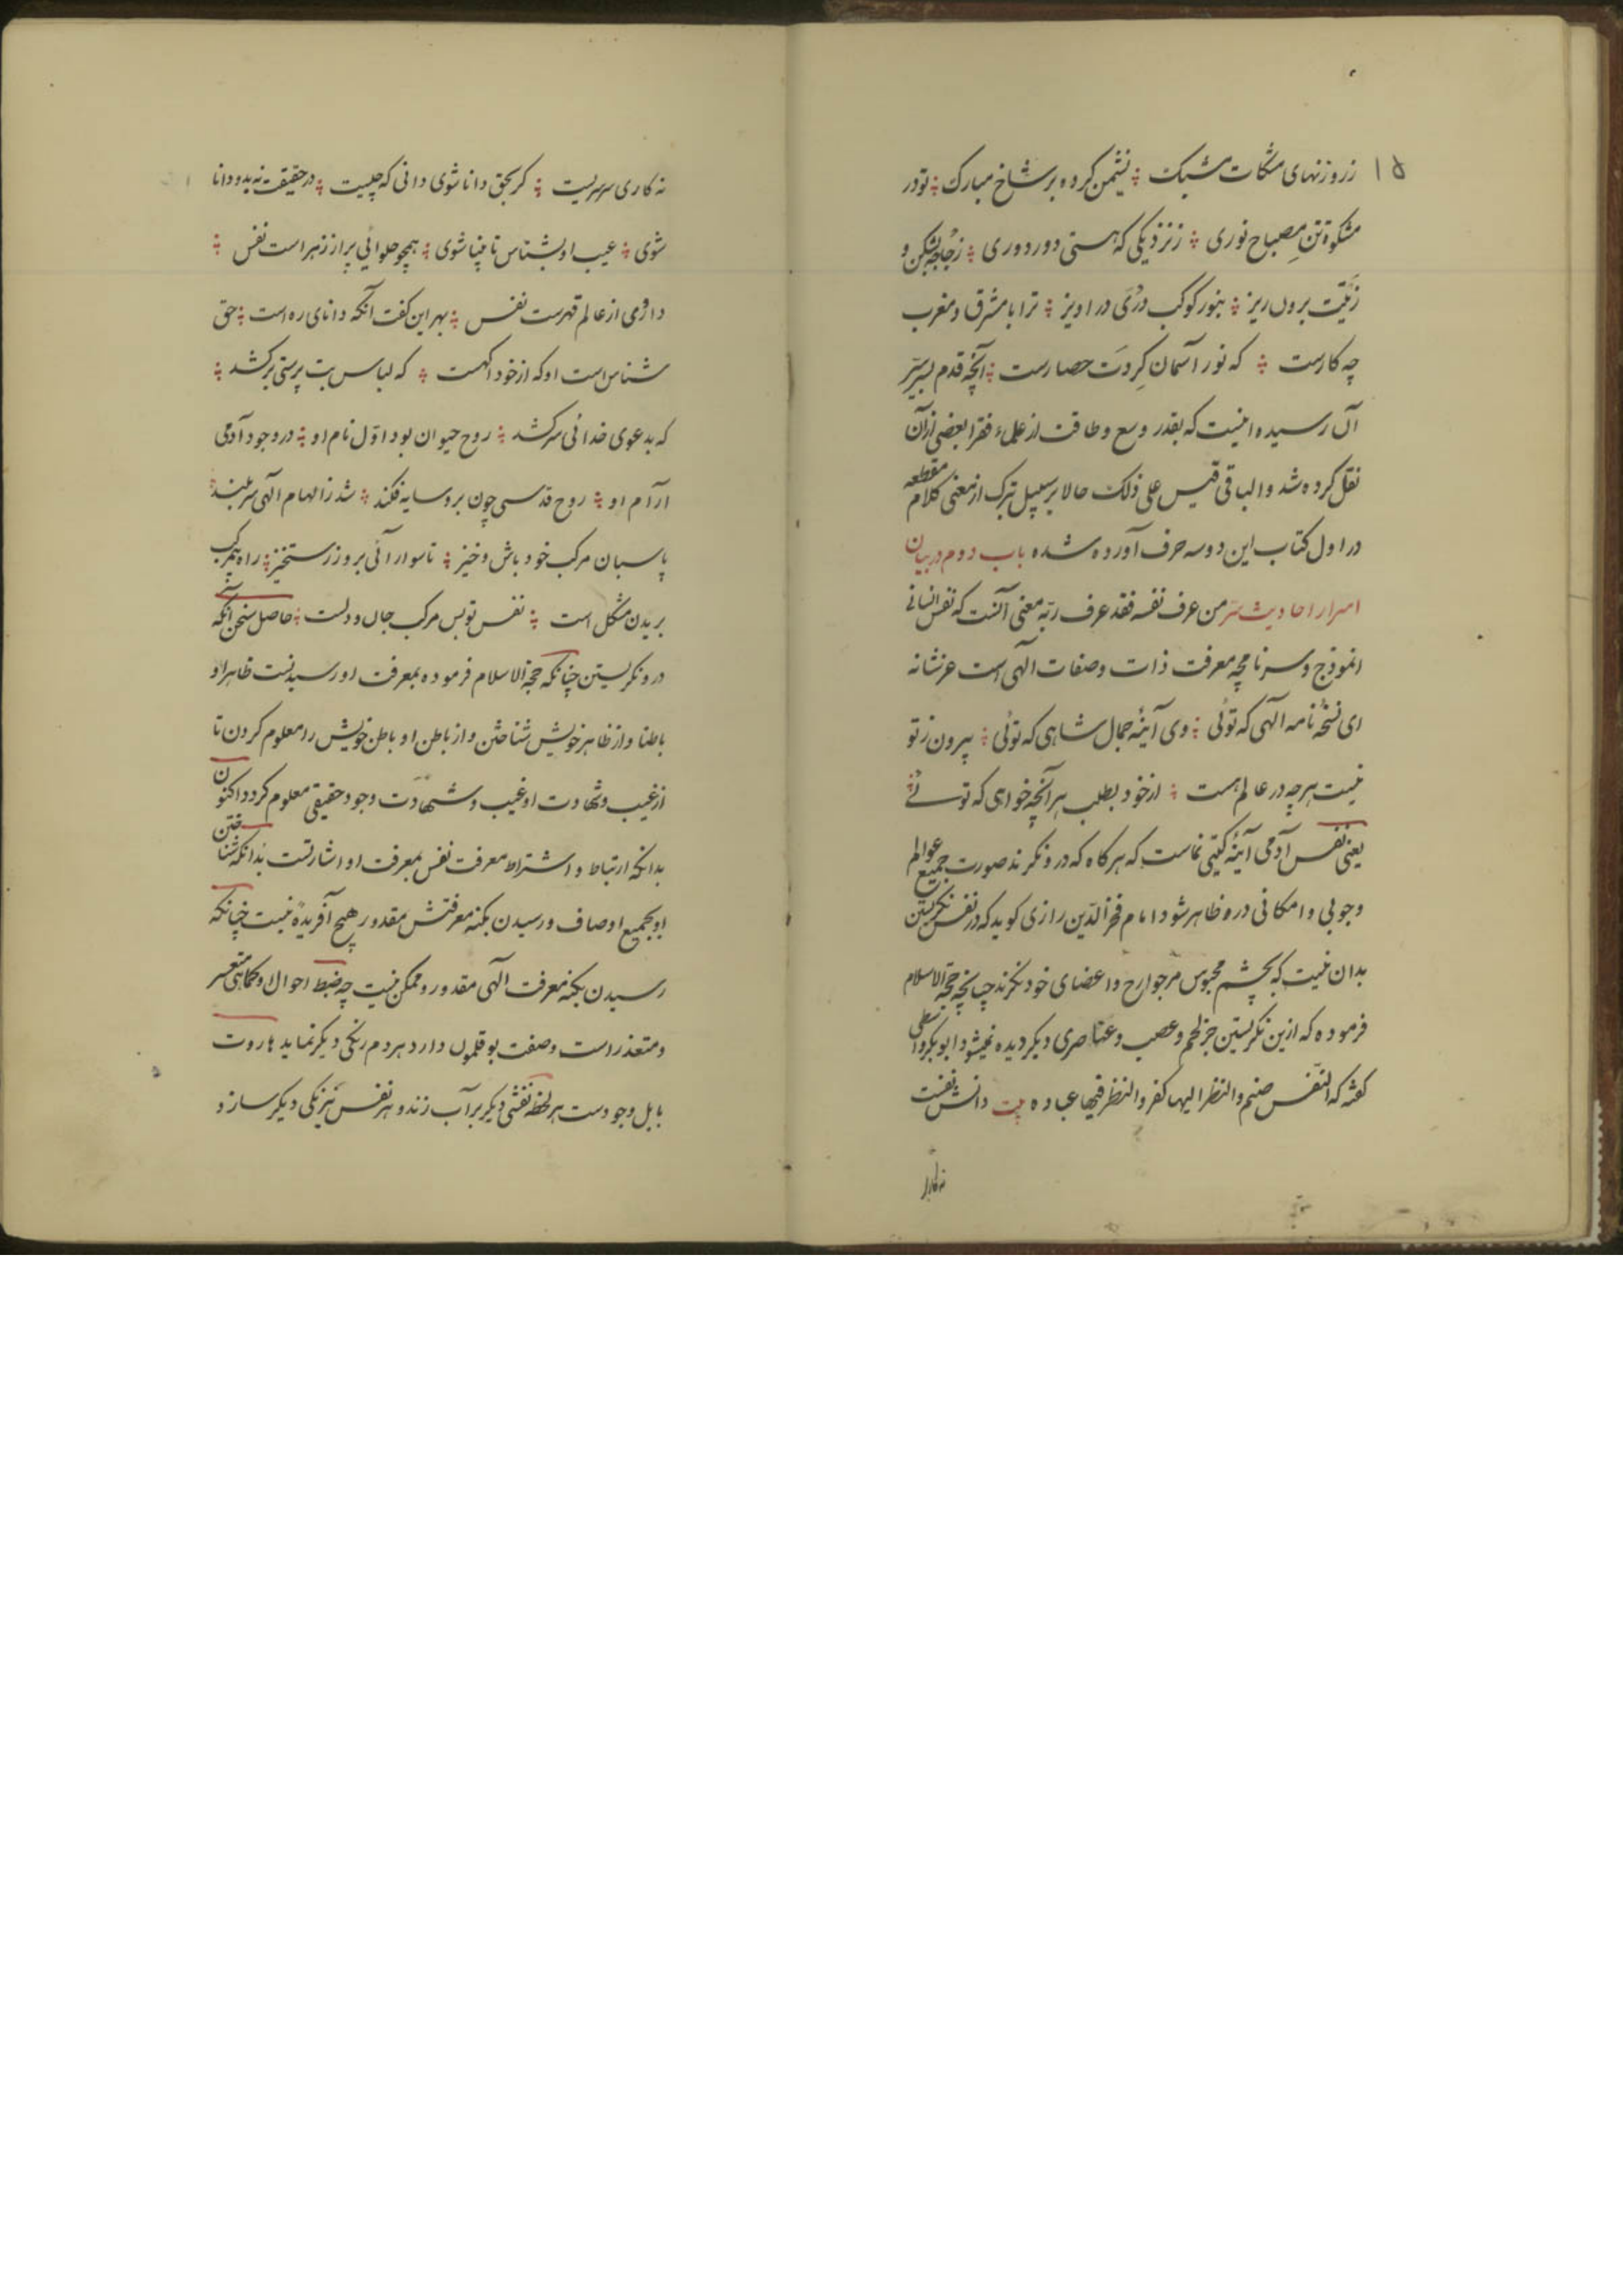 ۱۵
زروزنهای مشکات مشبک ؛ نشیمن کرده بر شاخ مبارک ؛ تو در
مشکوة تن مصباح نوری ؛ ز نزدیکی که هستی دور دوری ؛ زجاجه بشکن و
زیتت برون ریز ؛ بنور کوکب دری در اویز ؛ ترا با مشرق و مغرب
چه کارست ؛ که نور آسمان کردت حصارست ؛ آنچه قدم بسیر
آن رسیده اینست که بقدر وسع و طاقت از علماء فقرا بعضی ازان
نقل کرده شد والباقی قیس علی ذلک حالا بر سبیل تبرک از معنی کلام مقطعه
در اول کتاب این دو سه حرف آورده شده باب دوم در بیان
اسرار احادیث سر من عرف نفسه فقد عرف ربه معنی آنست که نفس انسانی
انموذج و سرنامچه معرفت ذات وصفات الهی است عزشانه
ای نسخه نامه الهی که توئی ؛ وی آینه جمال شاهی که توئی ؛ بیرون ز تو
نیست هرچه در عالم هست ؛ از خود بطلب هر آنچه خواهی که توئی
یعنی نفس آدمی آینه گیتی نماست که هر کاه که درو نکرند صورت جمیع عوالم
وجوبی و امکانی درو ظاهر شود امام فخرالدین رازی کوید که در نفس نکریستن
بدان نیست که بچشم محبوس مر جوارح و اعضای خود نکرند چنانچه حجة الاسلام
فرموده که ازین نکریستن جز لحم و عصب و عناصری دیکر دیده نمیشود ابوبکر واسطی
گفته که النفس صنم والنظر الیها کفر والنظر فیها عباده بیت دانش نفست
نه کاری
نه کاری سرسریست ؛ کر بحق دانا شوی دانی که چیست ؛ در حقیقت نه بدو دانا
شوی ؛ عیب او بشناس تا بینا شوی ؛ همچو حلوائی پر از زهر است نفس ؛
داژمی از عالم قهرست نفس ؛ بهر این کفت آنکه دانای ره است ؛ حق
شناس است او که از خود اکهست ؛ که لباس بت پرستی برکشد ؛
که بدعوی خدائی سرکشد ؛ روح حیوان بود اول نام او ؛ در وجود آدمی
آرام او ؛ روح قدسی چون برو سایه فکند ؛ شد ز الهام الهی سربلند ؛
پاسبان مرکب خود باش و خیز ؛ تا سوار آئی بروز رستخیز ؛ راه بی مرکب
بریدن مشکل است ؛ نفس تو بس مرکب جان و دلست ؛ حاصل سخن آنکه
درو نکریستن چنانکه حجة الاسلام فرموده بمعرفت او رسیدنست ظاهرا و
باطنا و از ظاهر خویش شناختن و از باطن او باطن خویش را معلوم کردن تا
از غیب و شهادت او غیب و شهادت وجود حقیقی معلوم کردد اکنون
بدانکه ارتباط و اشتراط معرفت نفس بمعرفت او اشارتست بدانکه شناختن
او بجمیع اوصاف و رسیدن بکنه معرفتش مقدور هیچ آفریده نیست چنانکه
رسیدن بکنه معرفت الهی مقدور و ممکن نیست چه ضبط احوال او کماهی متعسر
و متعذر است وصفت بوقلمون دارد هر دم رنکی دیکر نماید هاروت
بابل وجودست هر لحظه نقشی دیکر بر آب زند و هر نفس نیرنکی دیکر سازد